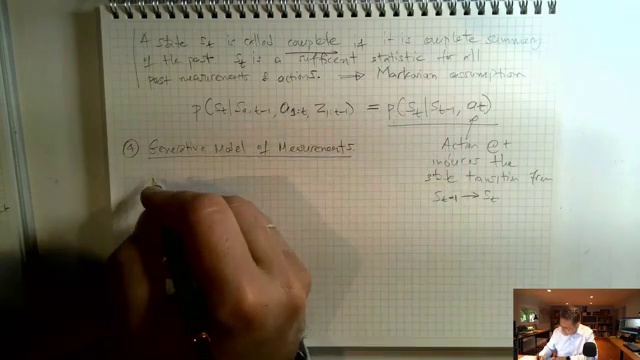 A state St is called complete if it is complete summary
of the past St is a sufficient statistic for all
past measurements & actions. ⟹ Markovian assumption
p(St|S0:t-1, a1:t, Z1:t-1) = p(St|St-1, at)
Action @ t
induces the
state transition from
St-1 → St
④ Generative Model of Measurements